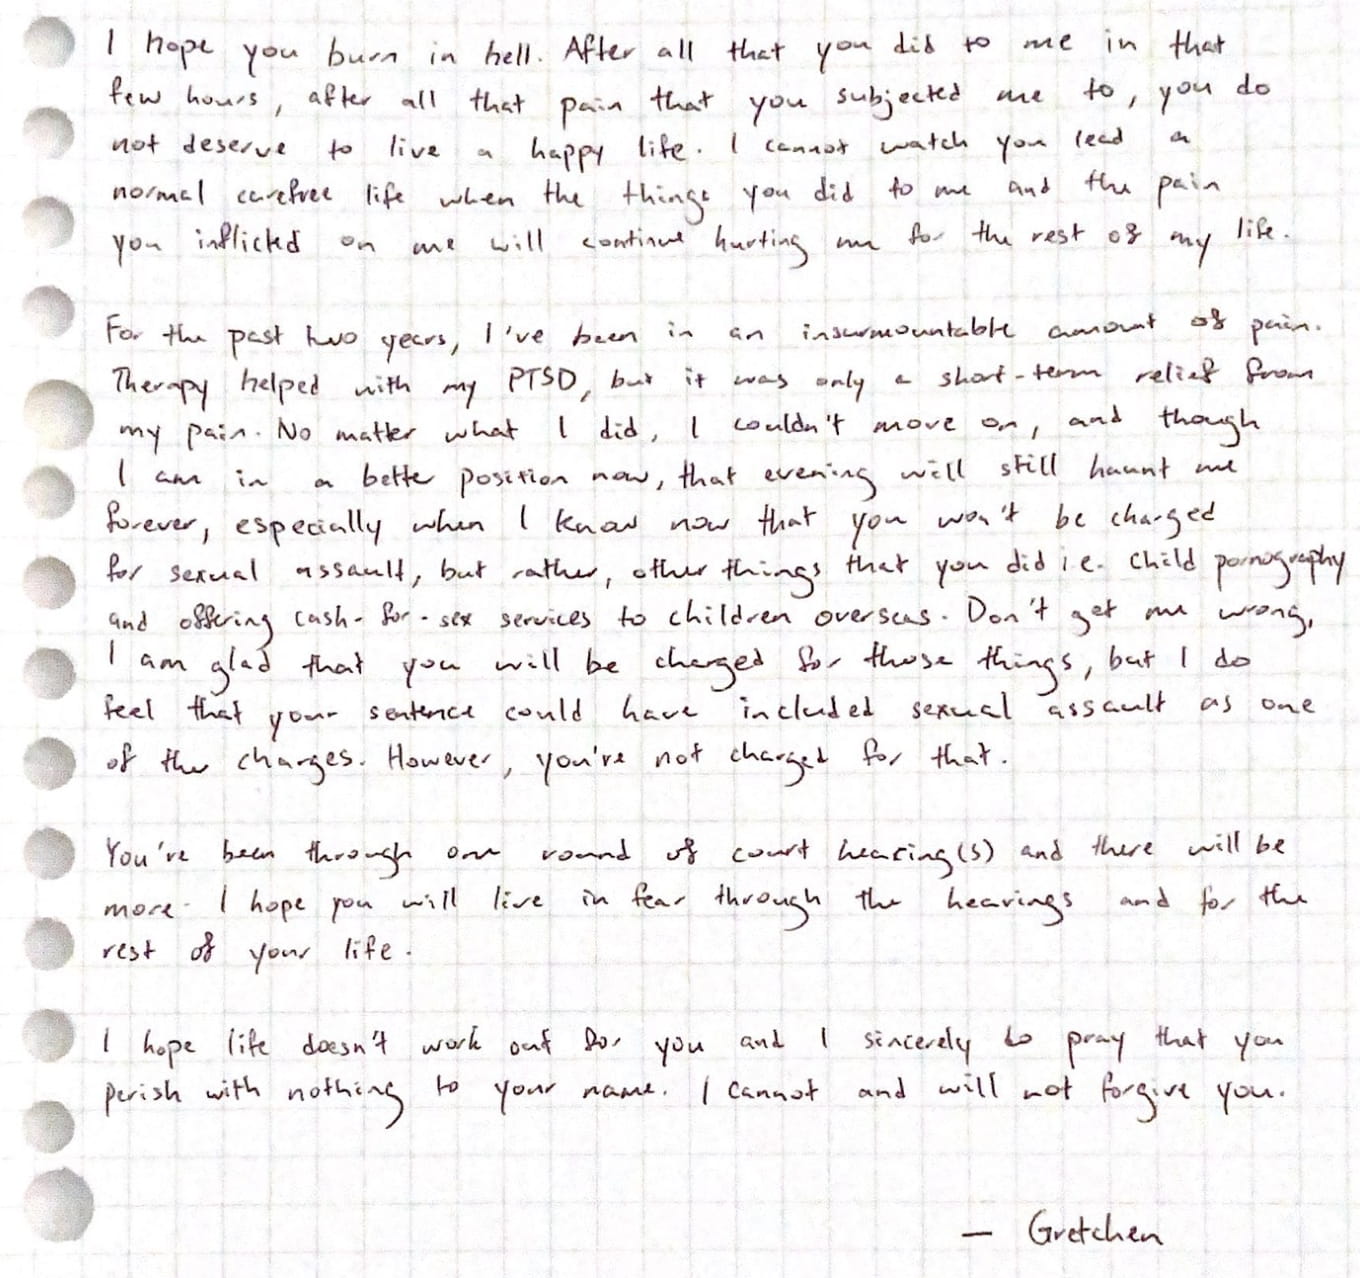 I hope you burn in hell. After all that you did to me in that
few hours, after all that pain that you subjected me to, you do
not deserve to live a happy life. I cannot watch you lead a
normal carefree life when the things you did to me and the pain
you inflicted on me will continue hurting me for the rest of my life.
For the past two years, I've been in an insurmountable amount of pain.
Therapy helped with my PTSD, but it was only a short-term relief from
my pain. No matter what I did, I couldn't move on, and though
I am in a better position now, that evening will still haunt me
forever, especially when I know now that you won't be charged
for sexual assault, but rather, other things that you did i.e. child pornography
and offering cash-for-sex services to children overseas. Don't get me wrong,
I am glad that you will be charged for those things, but I do
feel that your sentence could have included sexual assault as one
of the charges. However, you're not charged for that.
You've been through one round of court hearing(s) and there will be
more. I hope you will live in fear through the hearings and for the
rest of your life.
I hope life doesn't work out for you and I sincerely do pray that you
perish with nothing to your name. I cannot and will not forgive you.
— Gretchen